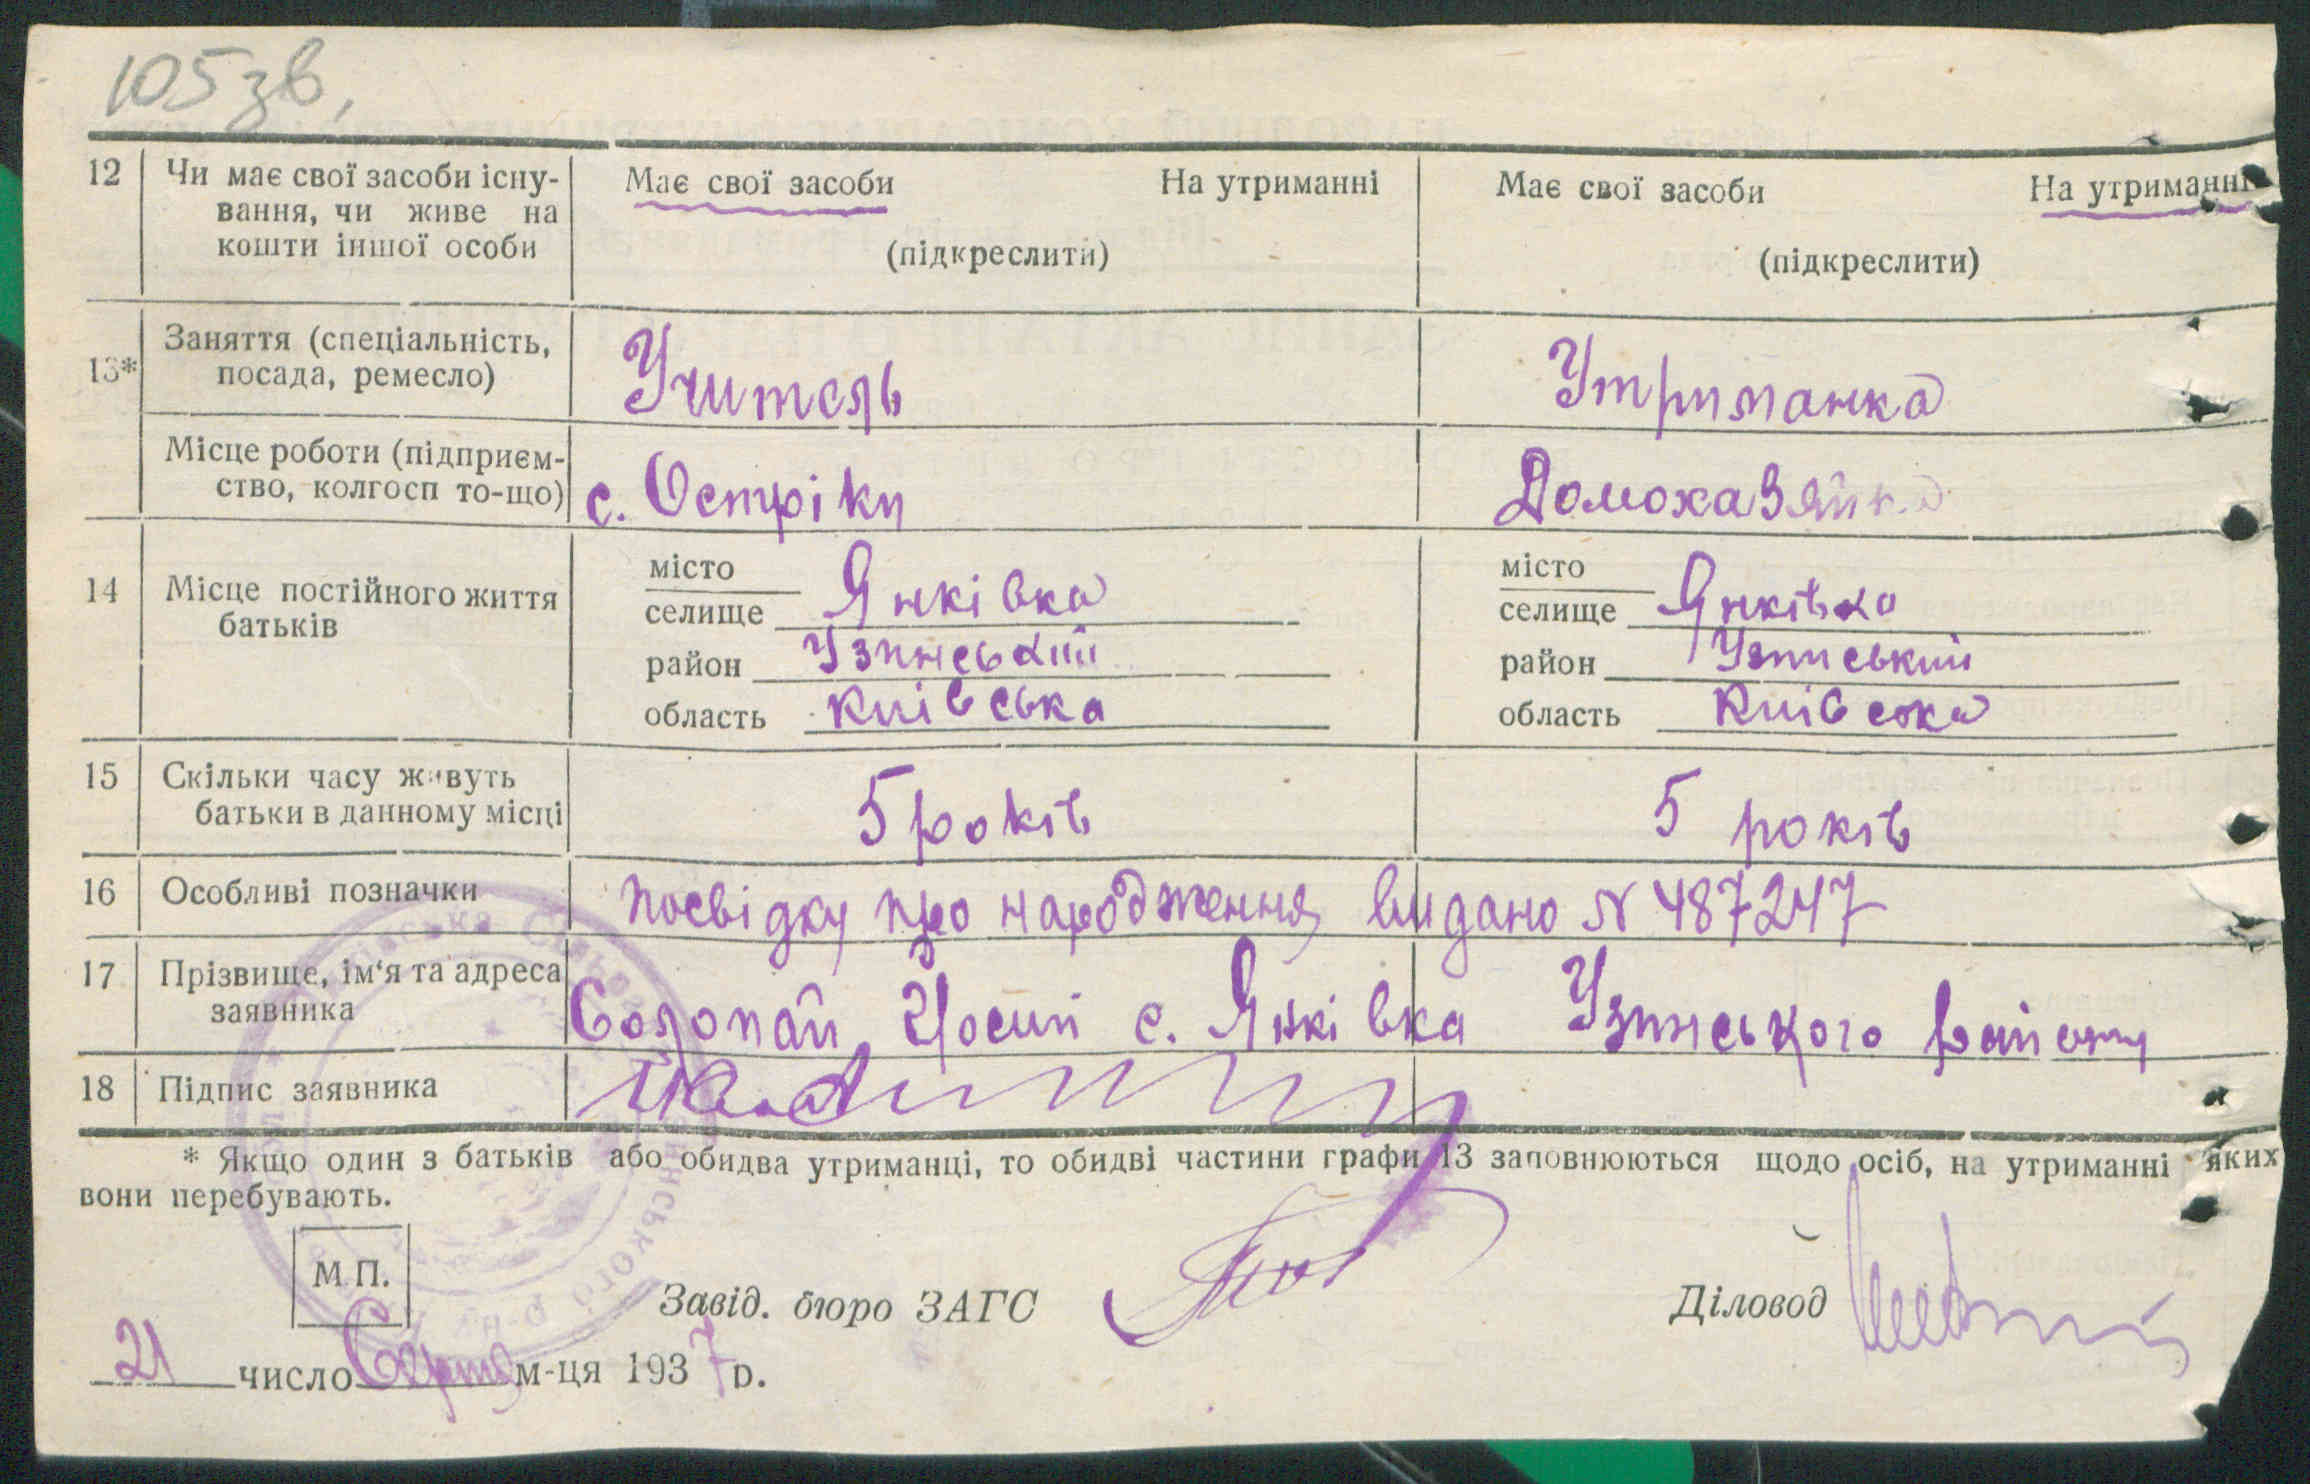 105 зв,
12 Чи має свої засоби існу- Має свої засоби На утриманні Має свої засоби На утриманні
вання, чи живе на
кошти іншої особи (підкреслити) (підкреслити)
13* Заняття (спеціальність,
посада, ремесло) Учитель Утриманка
Місце роботи (підприєм-
ство, колгосп то-що) с. Острікі Домохазяйка
14 Місце постійного життя
батьків
місто місто
селище Янківка селище Янківка
район Узинський район Узинський
область Київська область Київська
15 Скільки часу живуть
батьки в данному місці 5 років 5 років
16 Особливі позначки посвідку про народження видано N 487247
17 Прізвище, ім'я та адреса
заявника Солопай Йосип с. Янківка Узинського району
18 Підпис заявника
* Якщо один з батьків або обидва утриманці, то обидві частини графи 13 заповнюються щодо осіб, на утриманні яких
вони перебувають.
М.П.
Завід. бюро ЗАГС Діловод
21 число Серпня м-ця 1937 р.